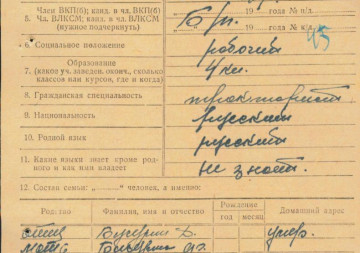 Член ВКП(б); канд. в чл. ВКП(б)
5. Чл. ВЛКСМ; канд. в чл. ВЛКСМ
(нужное подчеркнуть)
Б/п.
19 года № п/д.
19 года № к/к.
6. Социальное положение
рабочий
Образование
7. (какое уч. заведен. оконч., сколько классов или курсов, где и когда)
4 кл.
8. Гражданская специальность
тракторист
9. Национальность
русский
10. Родной язык
русский
11. Какие языки знает кроме родного и как ими владеет
не знает.
12. Состав семьи: „ “ человек, а именно:
Родство
Фамилия, имя и отчество
Рождение
год
месяц
Домашний адрес
отец
Д.
умер.
мать